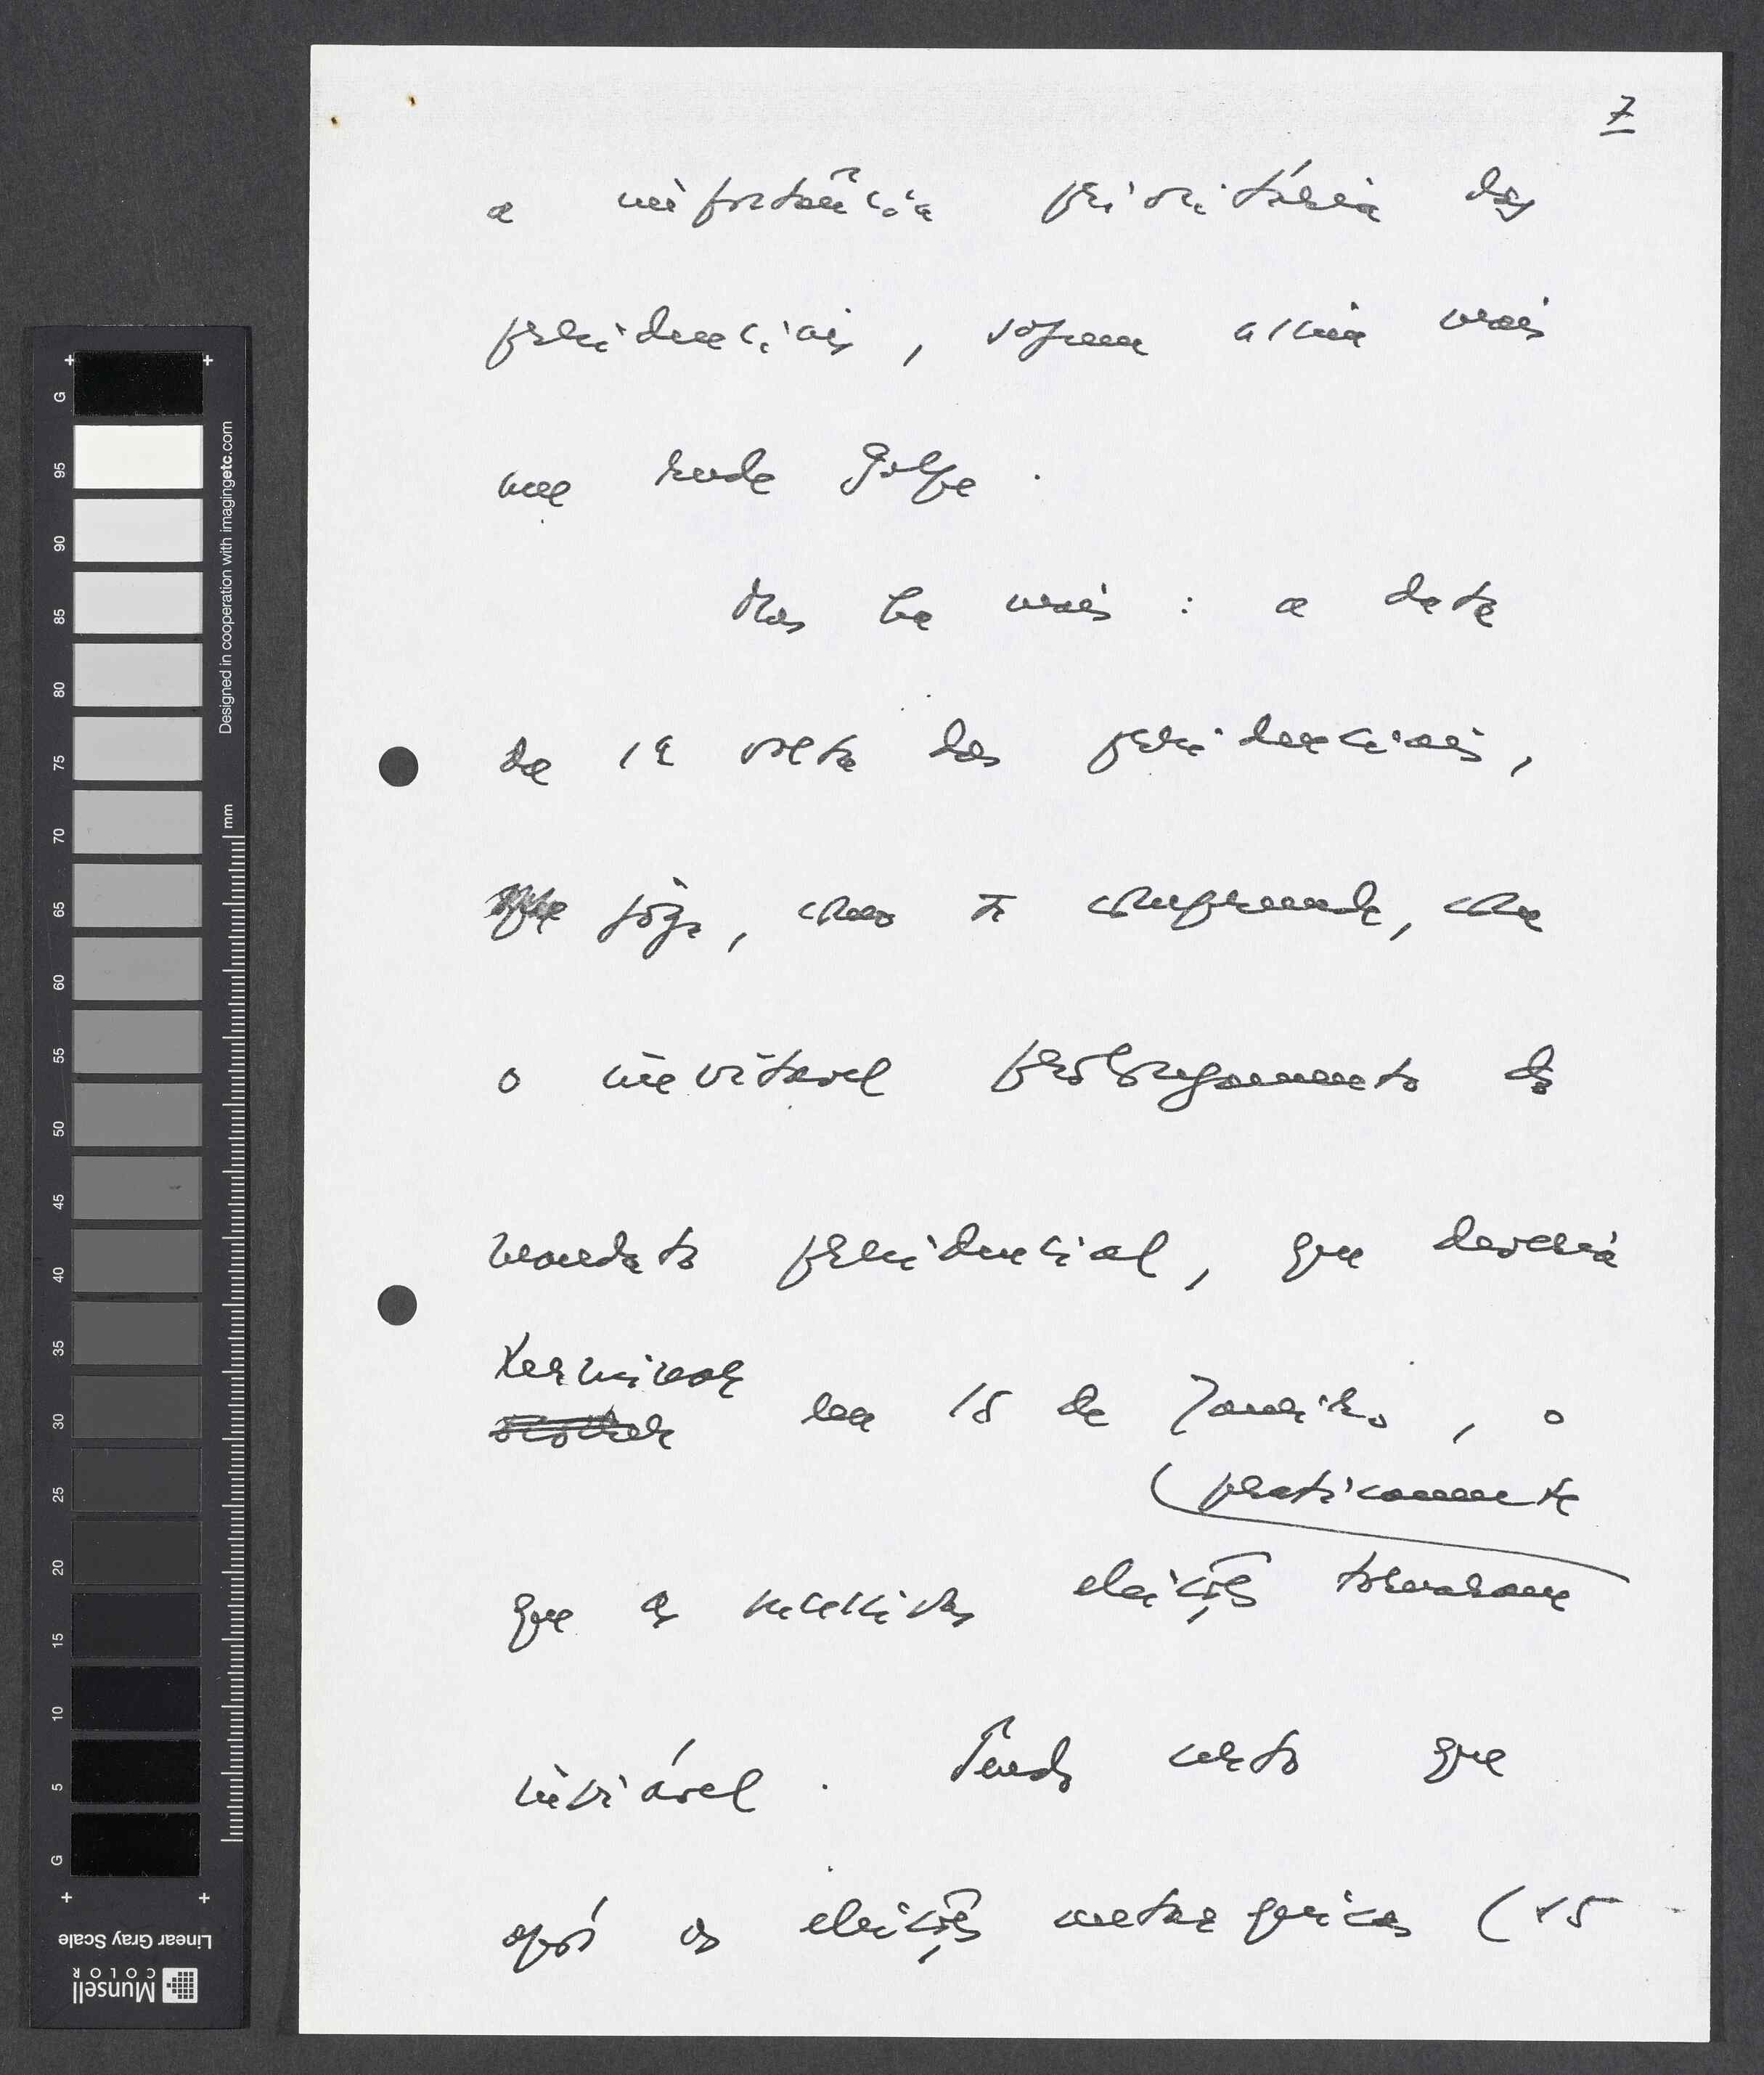 7
a importância prioritária das
presidenciais, sofreu assim mais
um rude golpe.
Mas há mais : a data
da 1ª volta das presidenciais,
que joga, como se compreende, com
o inevitavel prolongamento do
mandato presidencial, que deveria
terminar
em 15 de Janeiro, o
(praticamente
que as sucessivas eleições tornaram
inviável. Sendo certo que
após as eleições autarquicas (15
Designed in cooperation with imagingetc.com
mm
G 95 90 85 80 75 70 65 60 55 50 45 40 35 30 25 20 15 10 5 G
Linear Gray Scale
Munsell
COLOR